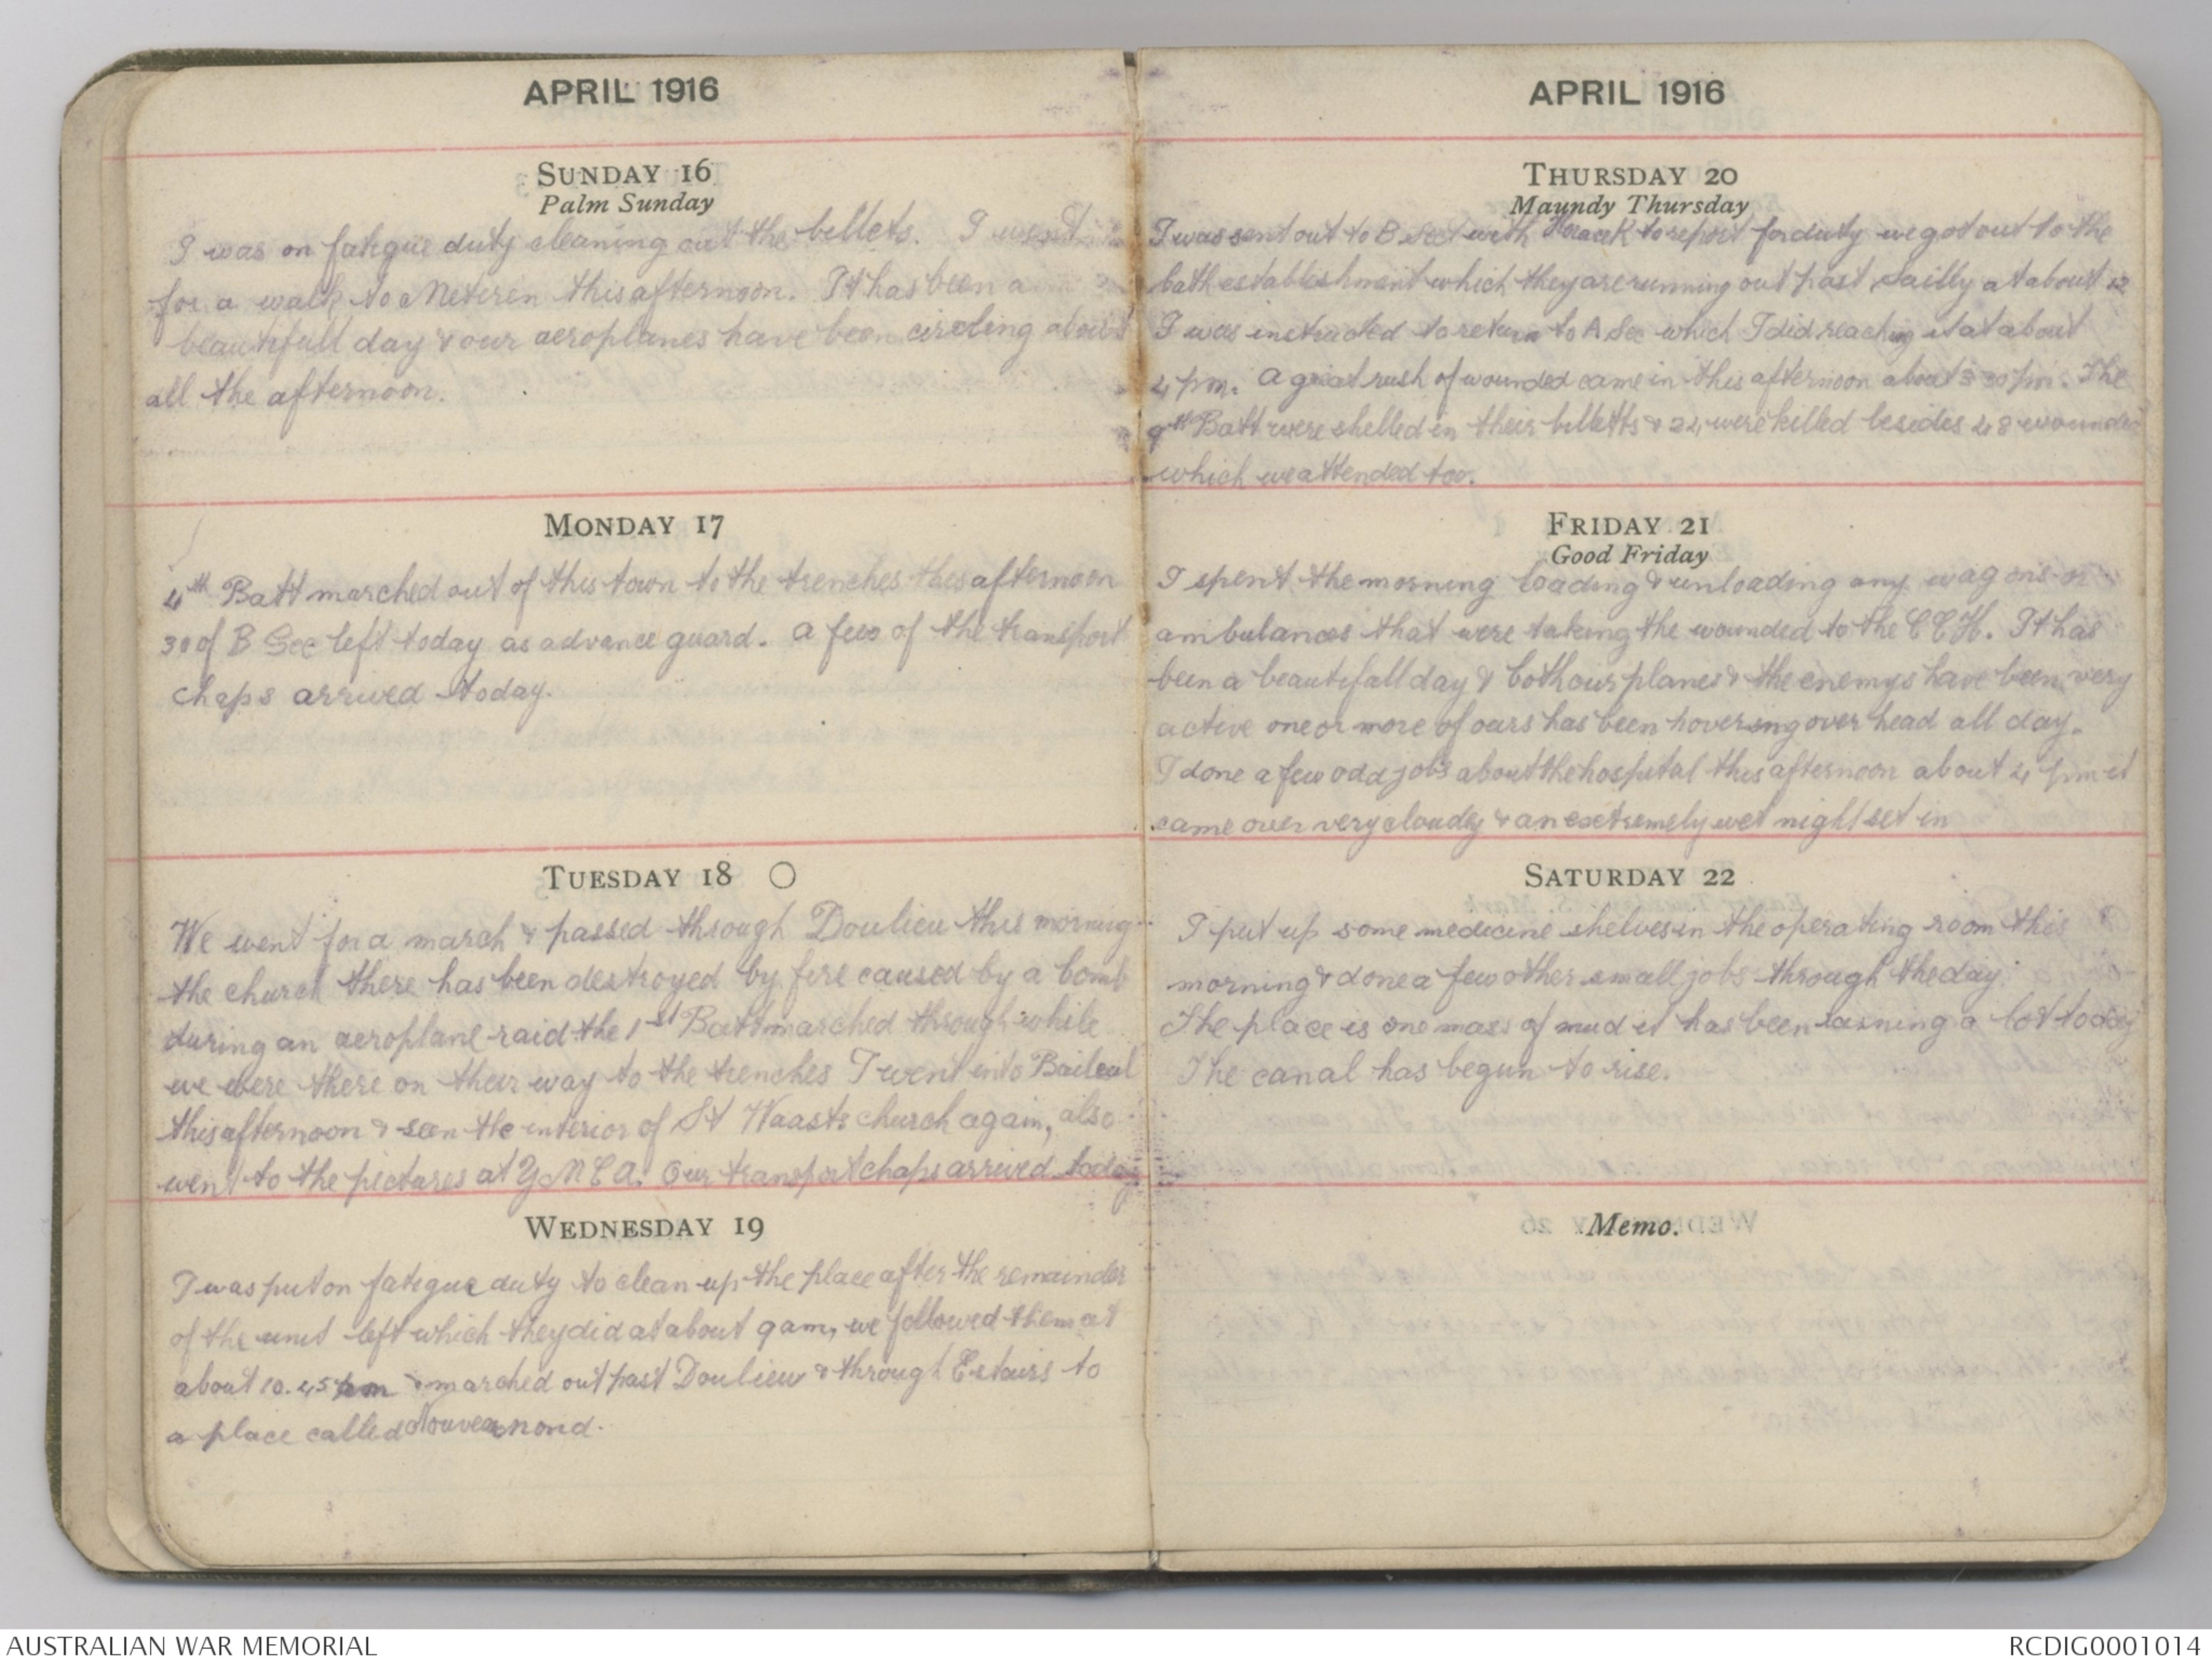 APRIL 1916
SUNDAY 16
Palm Sunday
I was on fatigue duty cleaning out the billets. I went
for a walk to Meteren this afternoon. It has been a
beautifull day & our aeroplanes have been circling about
all the afternoon.
MONDAY 17
4th Batt marched out of this town to the trenches this afternoon
30 of B Sec left today as advance guard. a few of the transport
chaps arrived today.
TUESDAY 18
We went for a march & passed through Doulieu this morning
the church there has been destroyed by fire caused by a bomb
during an aeroplane raid the 1st Batt marched through while
we were there on their way to the trenches I went into Baileul
this afternoon & seen the interior of St Waasts church again, also
went to the pictures at Y M C A. Our transport chaps arrived today
WEDNESDAY 19
I was put on fatigue duty to clean up the place after the remainder
of the unit left which they did at about 9 am, we followed them at
about 10.45 & marched out past Doulieu & through Estairs to
a place called
APRIL 1916
THURSDAY 20
Maundy Thursday
I was sent out to B Sect with to report for duty we got out to the
bath establishment which they are running out past Sailly at about 12
I was instructed to return to A Sec which I did reaching it at about
4 pm. A great rush of wounded came in this afternoon about 3 30 pm. The
9th Batt were shelled in their billetts & 24 were killed besides 48 wounded
which we attended too.
FRIDAY 21
Good Friday
I spent the morning loading & unloading any wagons or
ambulances that were taking the wounded to the C C H. It has
been a beautifull day & both our planes & the enemys have been very
active one or more of ours has been hovering over head all day.
I done a few odd jobs about the hospital this afternoon about 4 pm it
came over very cloudy & an extremely wet night set in
SATURDAY 22
I put up some medicine shelves in the operating room this
morning & done a few other small jobs through the day
The place is one mass of mud it has been raining a lot today
The canal has begun to rise.
Memo.
AUSTRALIAN WAR MEMORIAL
RCDIG0001014